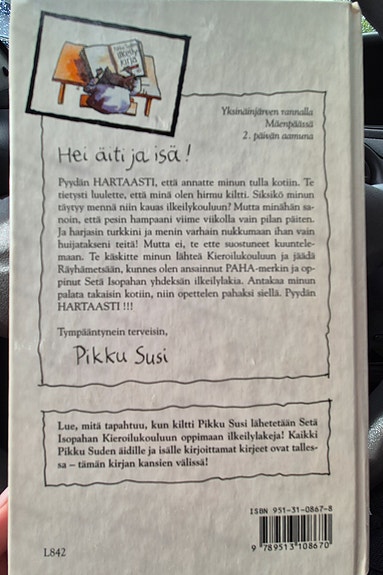 Pikku Suden
ilkeily
kirja
Yksinäinjärven rannalla
Mäenpäässä
2. päivän aamuna
Hei äiti ja isä!
Pyydän HARTAASTI, että annatte minun tulla kotiin. Te
tietysti luulette, että minä olen hirmu kiltti. Siksikö minun
täytyy mennä niin kauas ilkeilykouluun? Mutta minähän sa-
noin, että pesin hampaani viime viikolla vain pilan päiten.
Ja harjasin turkkini ja menin varhain nukkumaan ihan vain
huijatakseni teitä! Mutta ei, te ette suostuneet kuuntele-
maan. Te käskitte minun lähteä Kieroilukouluun ja jäädä
Räyhämetsään, kunnes olen ansainnut PAHA-merkin ja op-
pinut Setä Isopahan yhdeksän ilkeilylakia. Antakaa minun
palata takaisin kotiin, niin opettelen pahaksi siellä. Pyydän
HARTAASTI !!!
Tympääntynein terveisin,
Pikku Susi
Lue, mitä tapahtuu, kun kiltti Pikku Susi lähetetään Setä
Isopahan Kieroilukouluun oppimaan ilkeilylakeja! Kaikki
Pikku Suden äidille ja isälle kirjoittamat kirjeet ovat talles-
sa – tämän kirjan kansien välissä!
ISBN 951-31-0867-8
9 789513 108670
L842